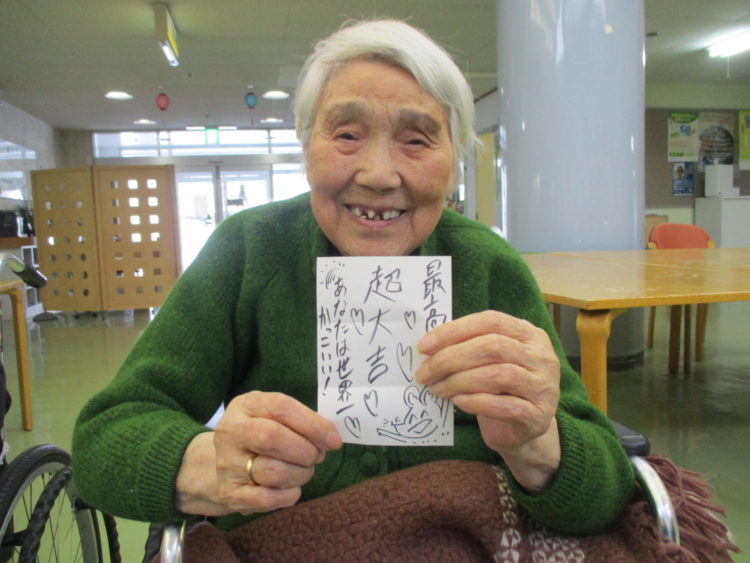 最高
超大吉
あなたは世界一
かっこいい!